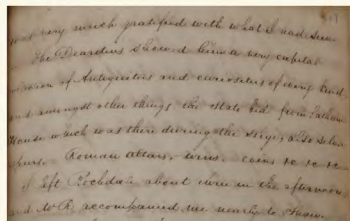 was very much gratified with what I had seen
The Deardens showed him a very capital
of Antiquities and curiosities of every kind
and amongst other things the State Bed from Lathom
House which was there during the Siege, also
Roman altars, urns, coins &c &c &c
I left Rochdale about in the afternoon
and Mr R. accompanied me nearly to